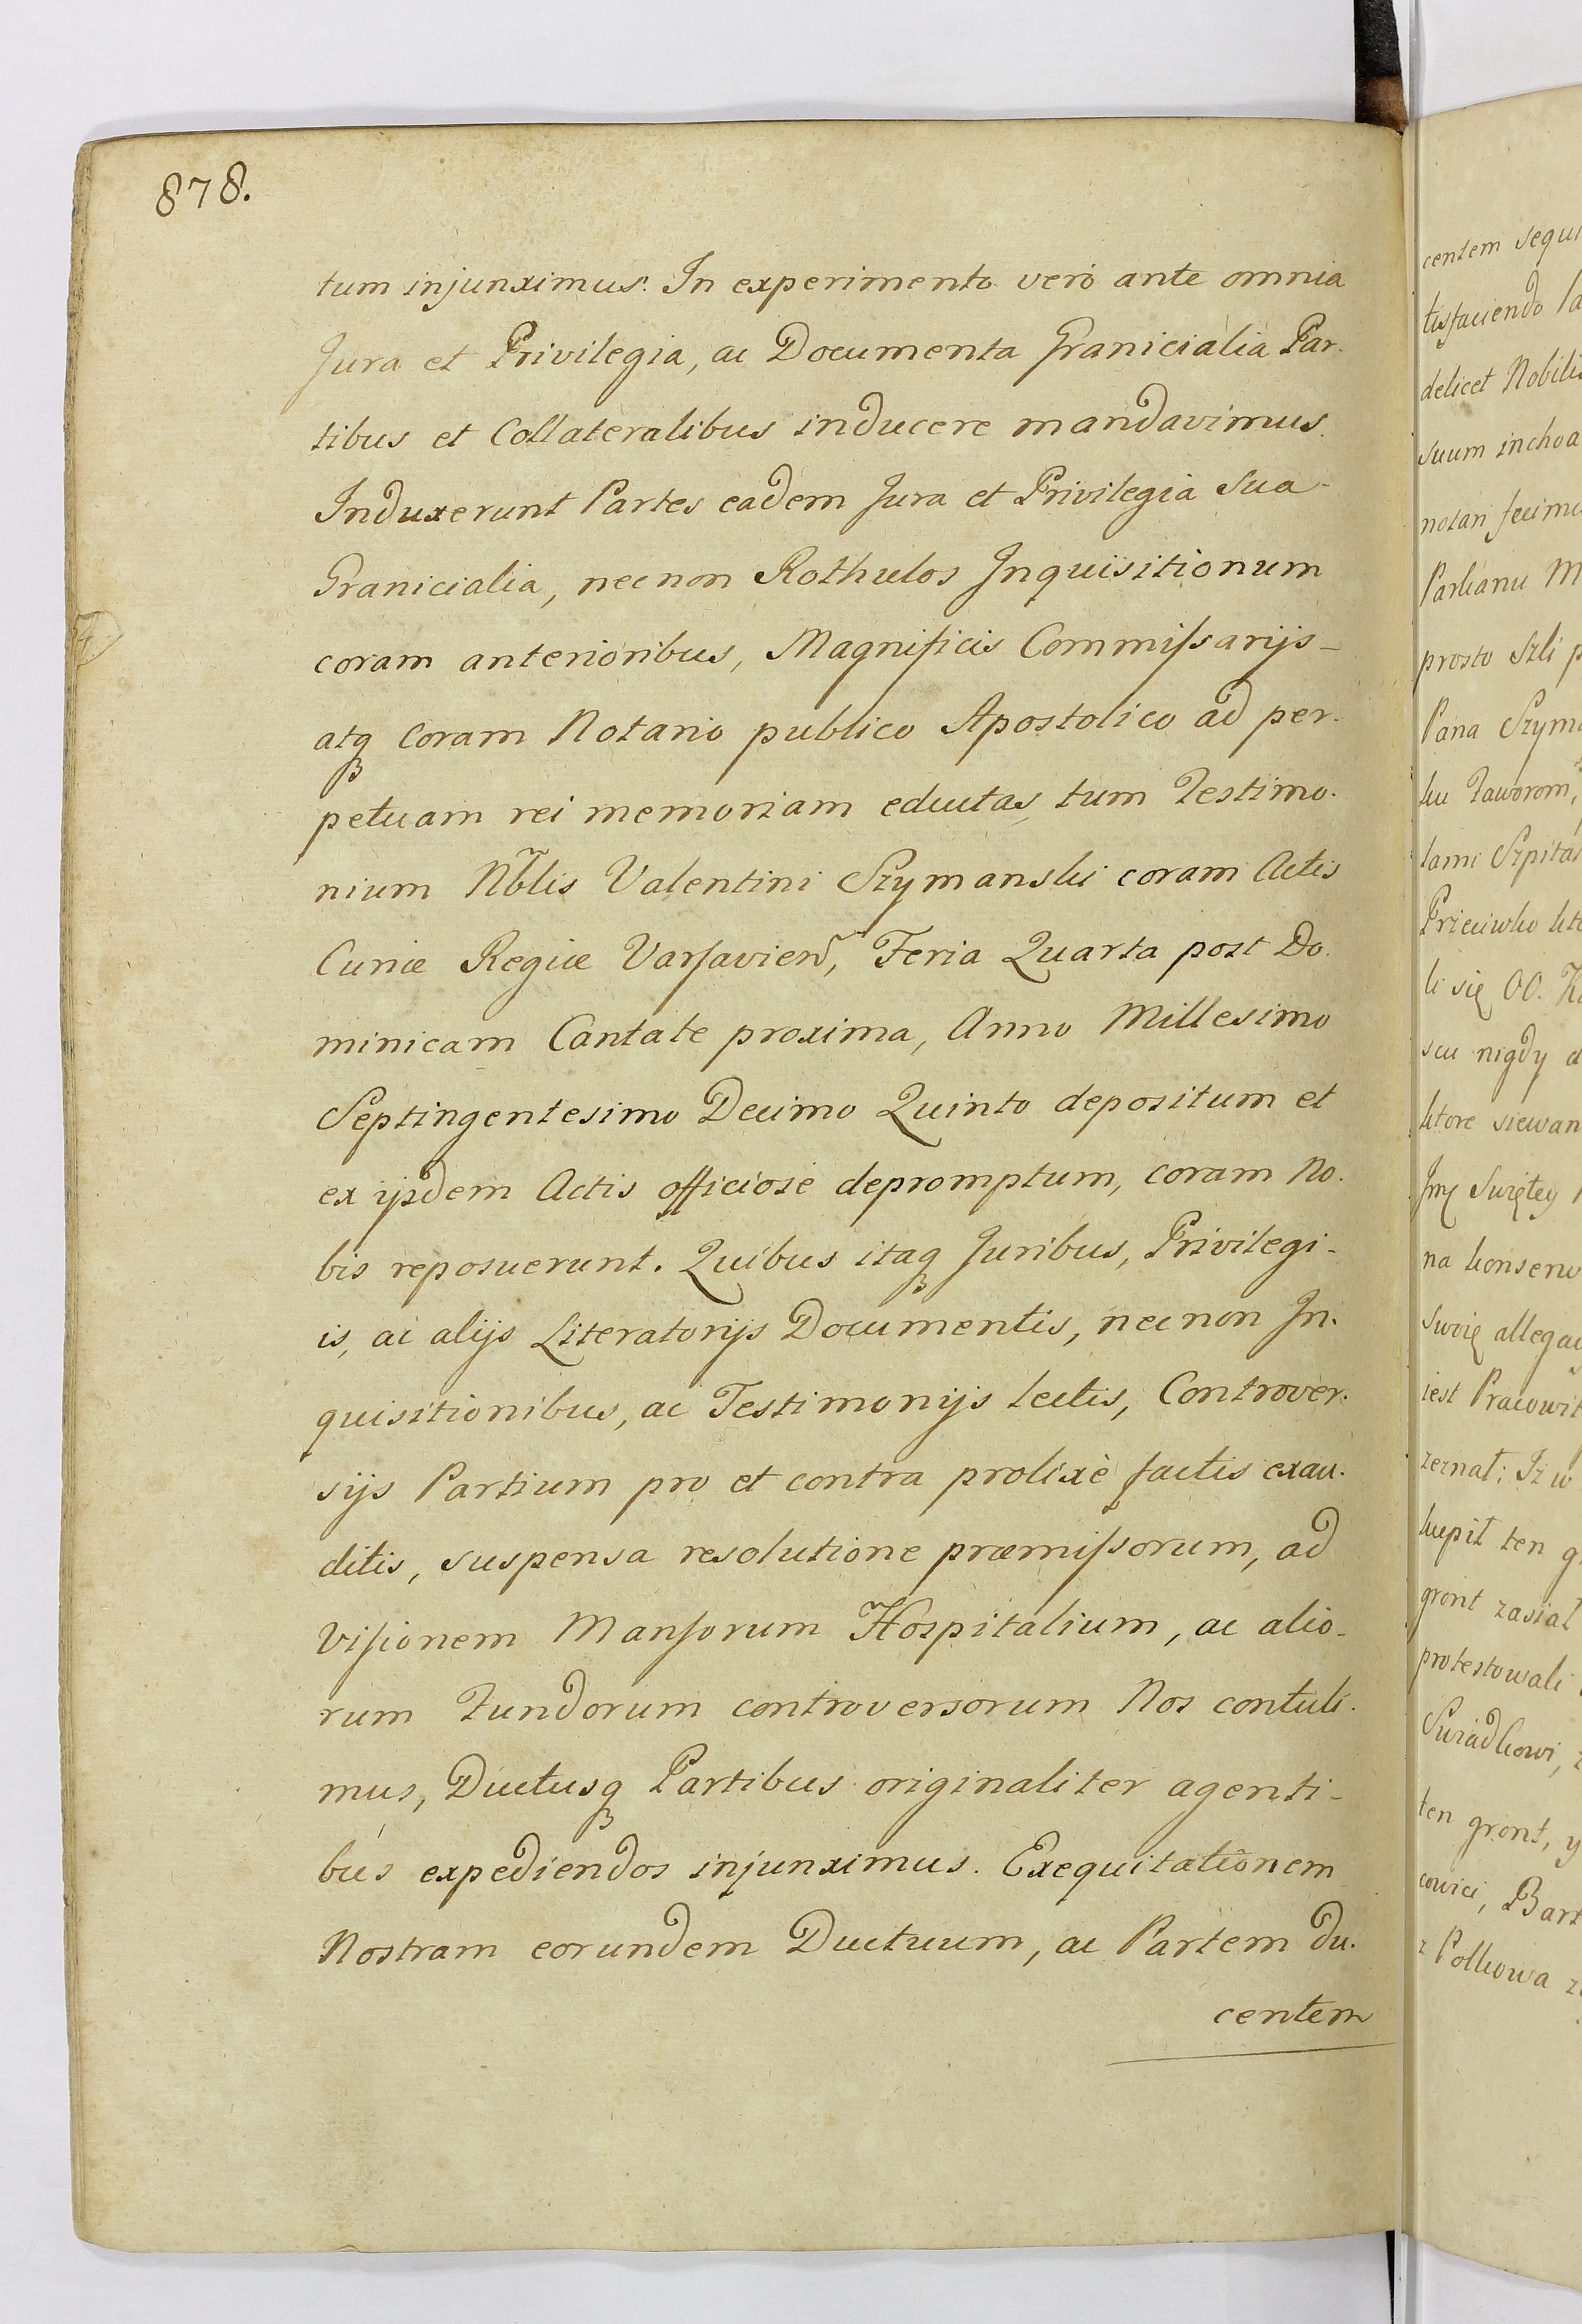 878.
tum injunximus. In experimento verò ante omnia
Jura et Privilegia, ac Documenta Granicialia Par-
tibus et Collateralibus inducere mandavimus.
Induxerunt Partes eadem Jura et Privilegia Sua
Granicialia, necnon Rothulos Inquisitionum
coram anterioribus, Magnificis Commiſsarijs
atq́ꝫ coram Notario publico Apostolico ad per-
petuam rei memoriam eductas, tum Testimo-
nium Nb̃lis Valentini Szymanski coram Actis
Curiæ Regiæ Varſavien̄, Feria Quarta post Do-
minicam Cantate proxima, Anno Millesimo
Septingentesimo Decimo Quinto depositum et
ex ijsdem Actis officiosè depromptum, coram No-
bis reposuerunt. Quibus itaqꝫ Juribus, Privilegi-
is, ac alijs Literatorijs Documentis, necnon In-
quisitionibus, ac Testimonijs lectis, Controver-
sijs Partium pro et contra prolixè factis exau-
ditis, suspensa resolutione præmiſsorum, ad
Viſionem Manſorum Hospitalium, ac alio-
rum Fundorum controversorum Nos contuli-
mus, Ductusqꝫ Partibus originaliter agenti-
bus expediendos injunximus. Exequitationem
Nostram eorundem Ductuum, ac Partem du-
centem
centem sequi
tisfaciendo
delicet Nobili
suum inchoa
notari fecimu
Parkanu
prosto szli
Pana Szyma
ku Jaworom,
lami Szpital
Przeciwko kto
li się OO.
scu nigdy
ktore siewan
Imę Swiętey
na konserw
Swoię allegac
iest Pracowit
zeznał: Iz w
kupił ten
gront zasiał
protestowali
Swiadkowi,
ten gront, y
cowici, Bart
z Polkowa